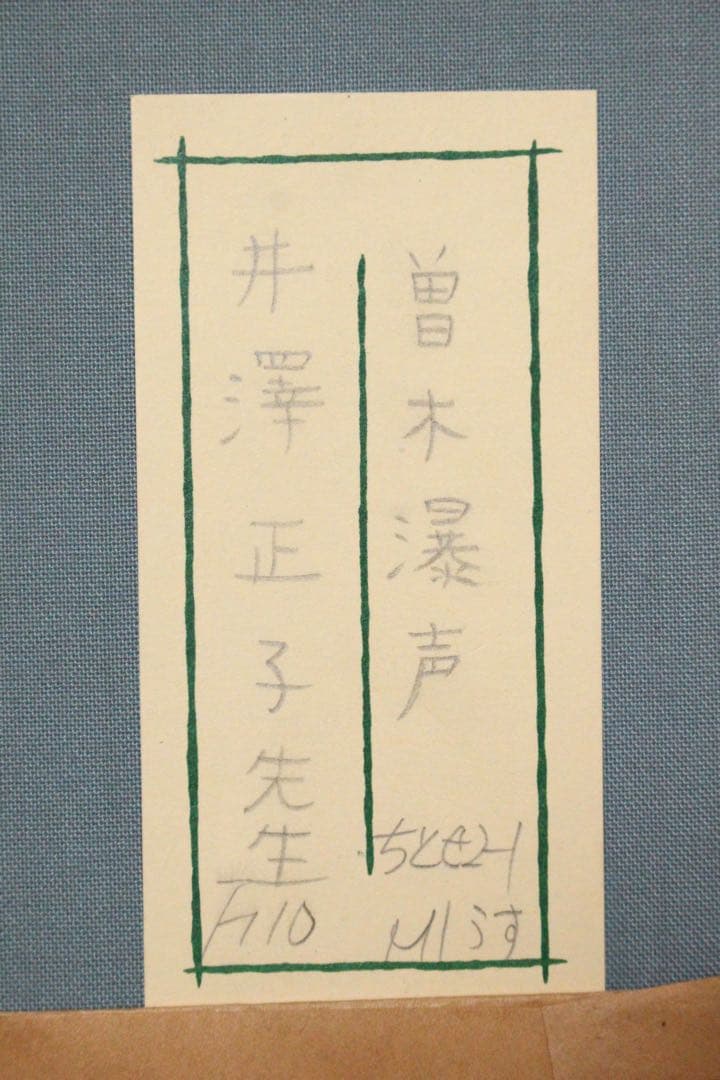 曽木瀑声
ちとせ21
M1うす
井澤正子先生
F10